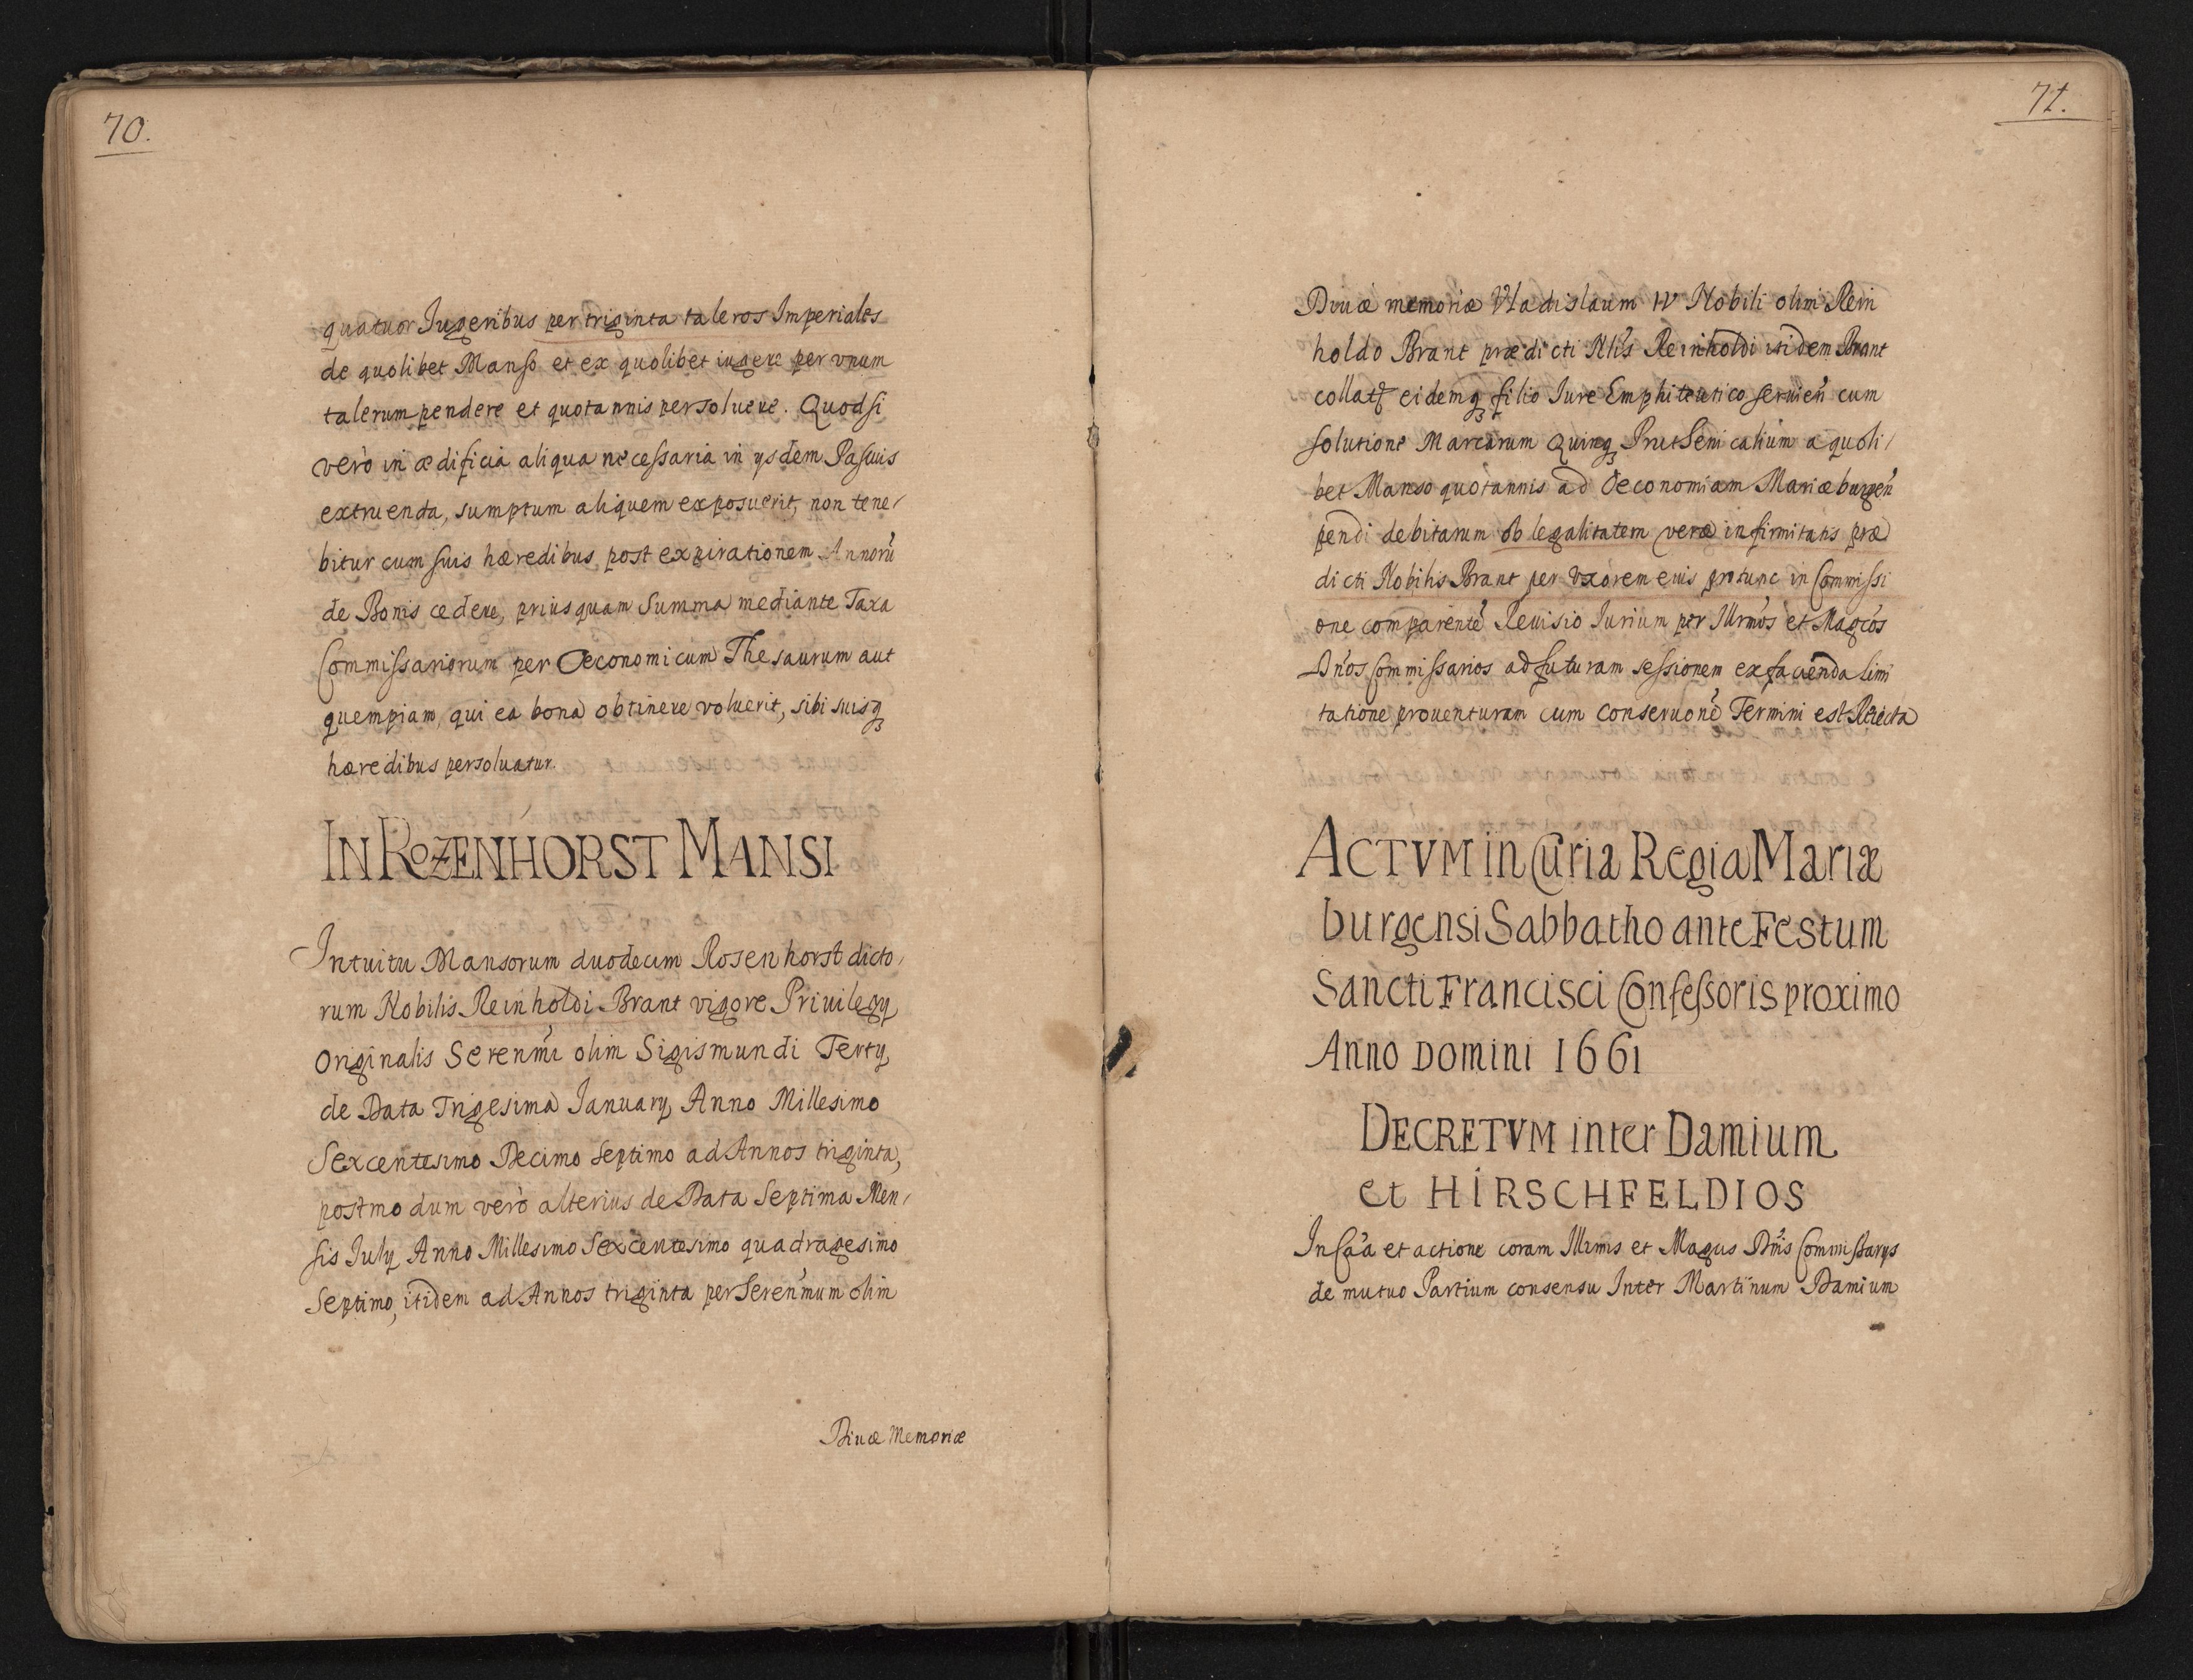 70.
quatuor Iugeribus per triginta taleros Imperiales
de quolibet Manso et ex quolibet iugere per vnum
talerum pendere et quotannis persoluere. Quodsi
verò in ædificia aliqua necessaria in ysdem Pascuis
extruenda, sumptum aliquem exposuerit, non tene/
bitur cum suis hæredibus post expirationem Annorū
de Bonis cedere, priusquam Summa mediante Taxa
Commissariorum per Œconomicum Thesaurum aut
quempiam, qui ea bona obtinere voluerit, sibi suisq3
hæredibus persoluatur.
IN ROZENHORST MANSI
Intuitu Mansorum duodecim Rosenhorst dicto/
rum Nobilis Reinholdi Brant vigore Priuilegy
Originalis Serenmi olim Sigismundi Terty
de Data Trigesima January Anno Millesimo
Sexcentesimo Decimo Septimo ad Annos triginta,
postmodum verò alterius de Data Septima Men/
sis July Anno Millesimo Sexcentesimo quadragesimo
Septimo, itidem ad Annos triginta per Serenmum olim
Diuæ Memoriæ
71.
Diuæ memoriæ Vladislaum IV Nobili olim Rein
holdo Brant prædicti Nlis Reinholdi itidem Brant
eidemq3 filio Iure Emphiteutico seruien cum
solutione Marcarum Quinq3 Prutheni calium a quoli/
bet Manso quotannis ad Oeconomiam Mariæburgen
pendi debitarum ob legalitatem veræ infirmitatis præ
dicti Nobilis Brant per Vxorem eius protunc in Commissi
one comparente Reuisio Iurium per Illrmos et Magcos
Dnos Commissarios ad futuram sessionem ex facienda Limi
tatione prouenturam cum conseruone Termini est Reiecta
ACTVM in Curia Regia Mariæ
burgensi Sabbatho ante Festum
Sancti Francisci Confessoris proximo
Anno Domini 1661
DECRETVM inter Damium
et HIRSCHFELDIOS
In Caa et actione coram Illrmis et Magcis Dnis Commissarys
de mutuo Partium consensu Inter Martinum Damium